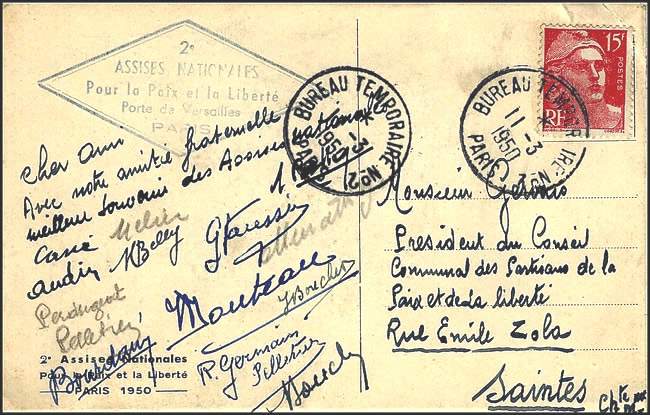 2e
ASSISES NATIONALES
Pour la Paix et la Liberté
Porte de Versailles
PARIS
BUREAU TEMPORAIRE No 2
-3
1950
PARIS
BUREAU TEMPORAIRE No
11 -3
1950
PARIS
15F
POSTES
RF
Cher Ami
Avec notre amitié fraternelle
meilleur souvenir des Assises nationales
Melier
Gaussin
audin
Monteau
JBoucher
Bourdeau
R. Germain
Pelletier
Monsieur Gervais
President du Conseil
Communal des Partisans de la
Paix et de la liberté
Rue Emile Zola
Saintes
Chte
2e Assises Nationales
Pour la Paix et la Liberté
PARIS 1950